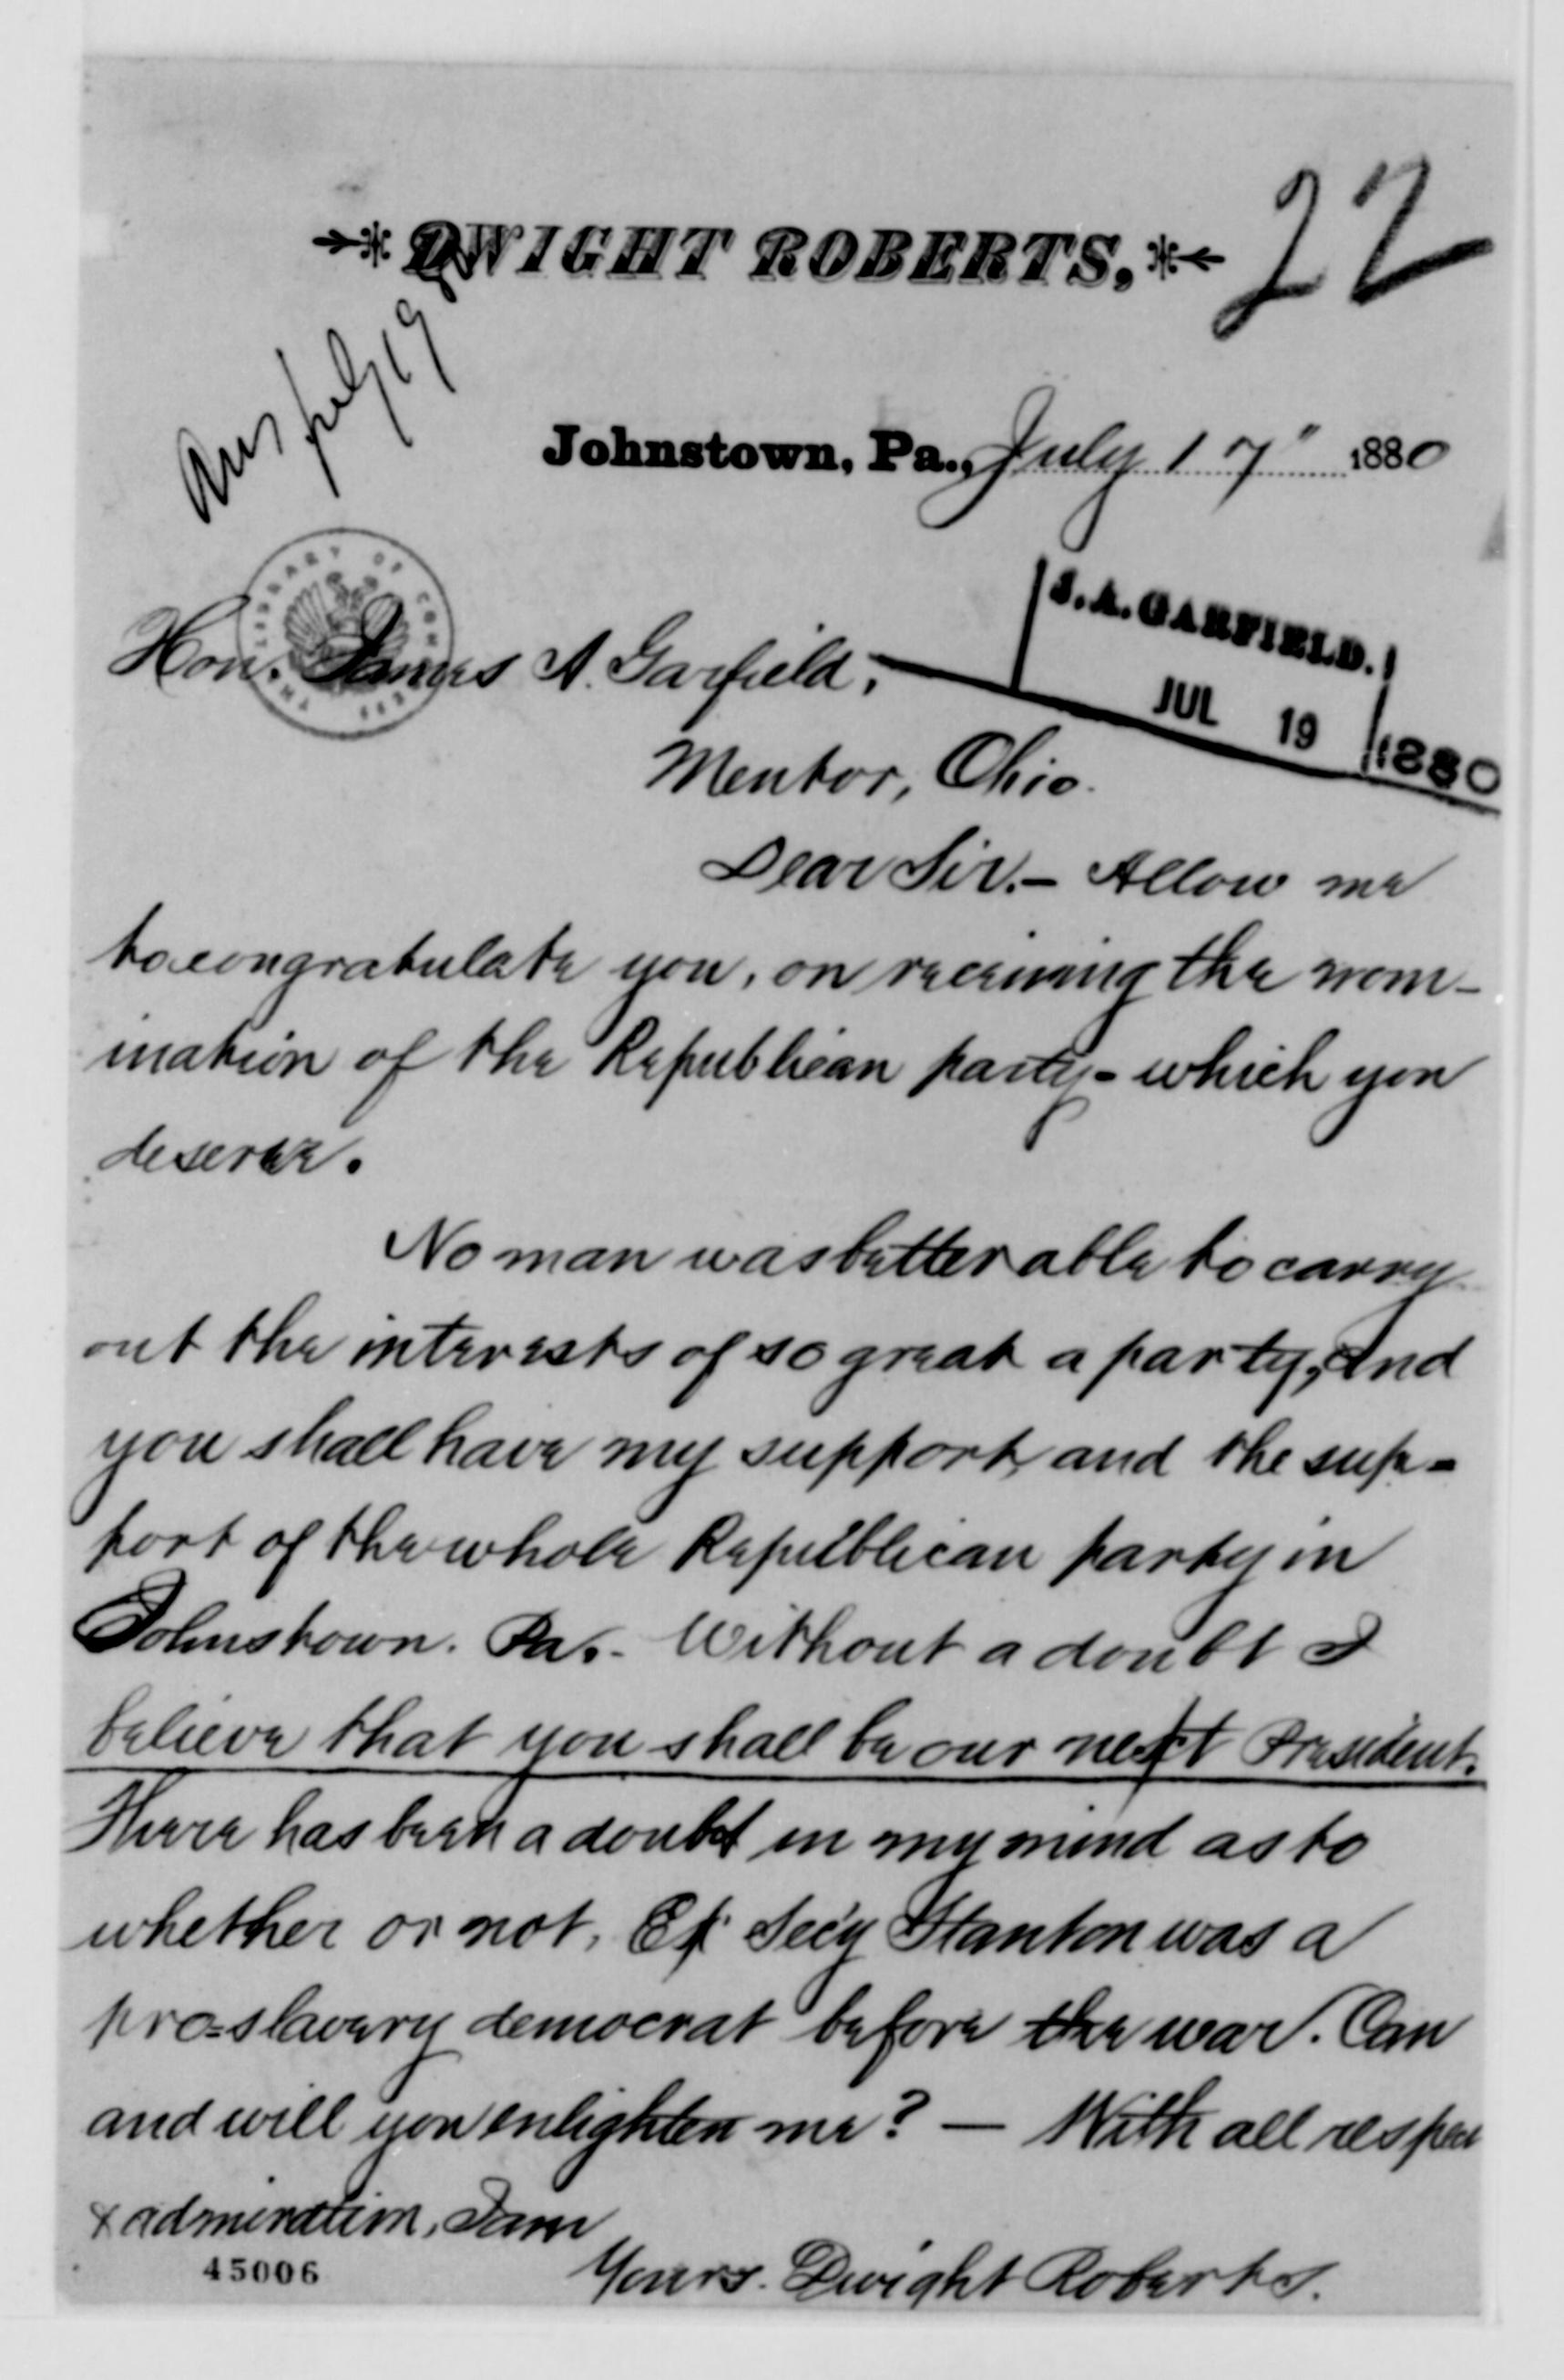 DWIGHT ROBERTS,
22
Ans July 19
Johnstown, Pa., July 17" 1880
J. A. GARFIELD.
JUL 19 1880
THE LIBRARY OF CONGRESS
Hon. James A. Garfield,
Mentor, Ohio.
Dear Sir.- Allow me
to congratulate you, on receiving the nom-
ination of the Republican party - which you
deserve.
No man was better able to carry
out the interests of so great a party, and
you shall have my support, and the sup-
port of the whole Republican party in
Johnstown. Pa.- Without a doubt I
believe that you shall be our next President.
There has been a doubt in my mind as to
whether or not, Ex Sec'y Stanton was a
pro-slavery democrat before the war. Can
and will you enlighten me? — With all respect
& admiration, I am
Yours. Dwight Roberts.
45006